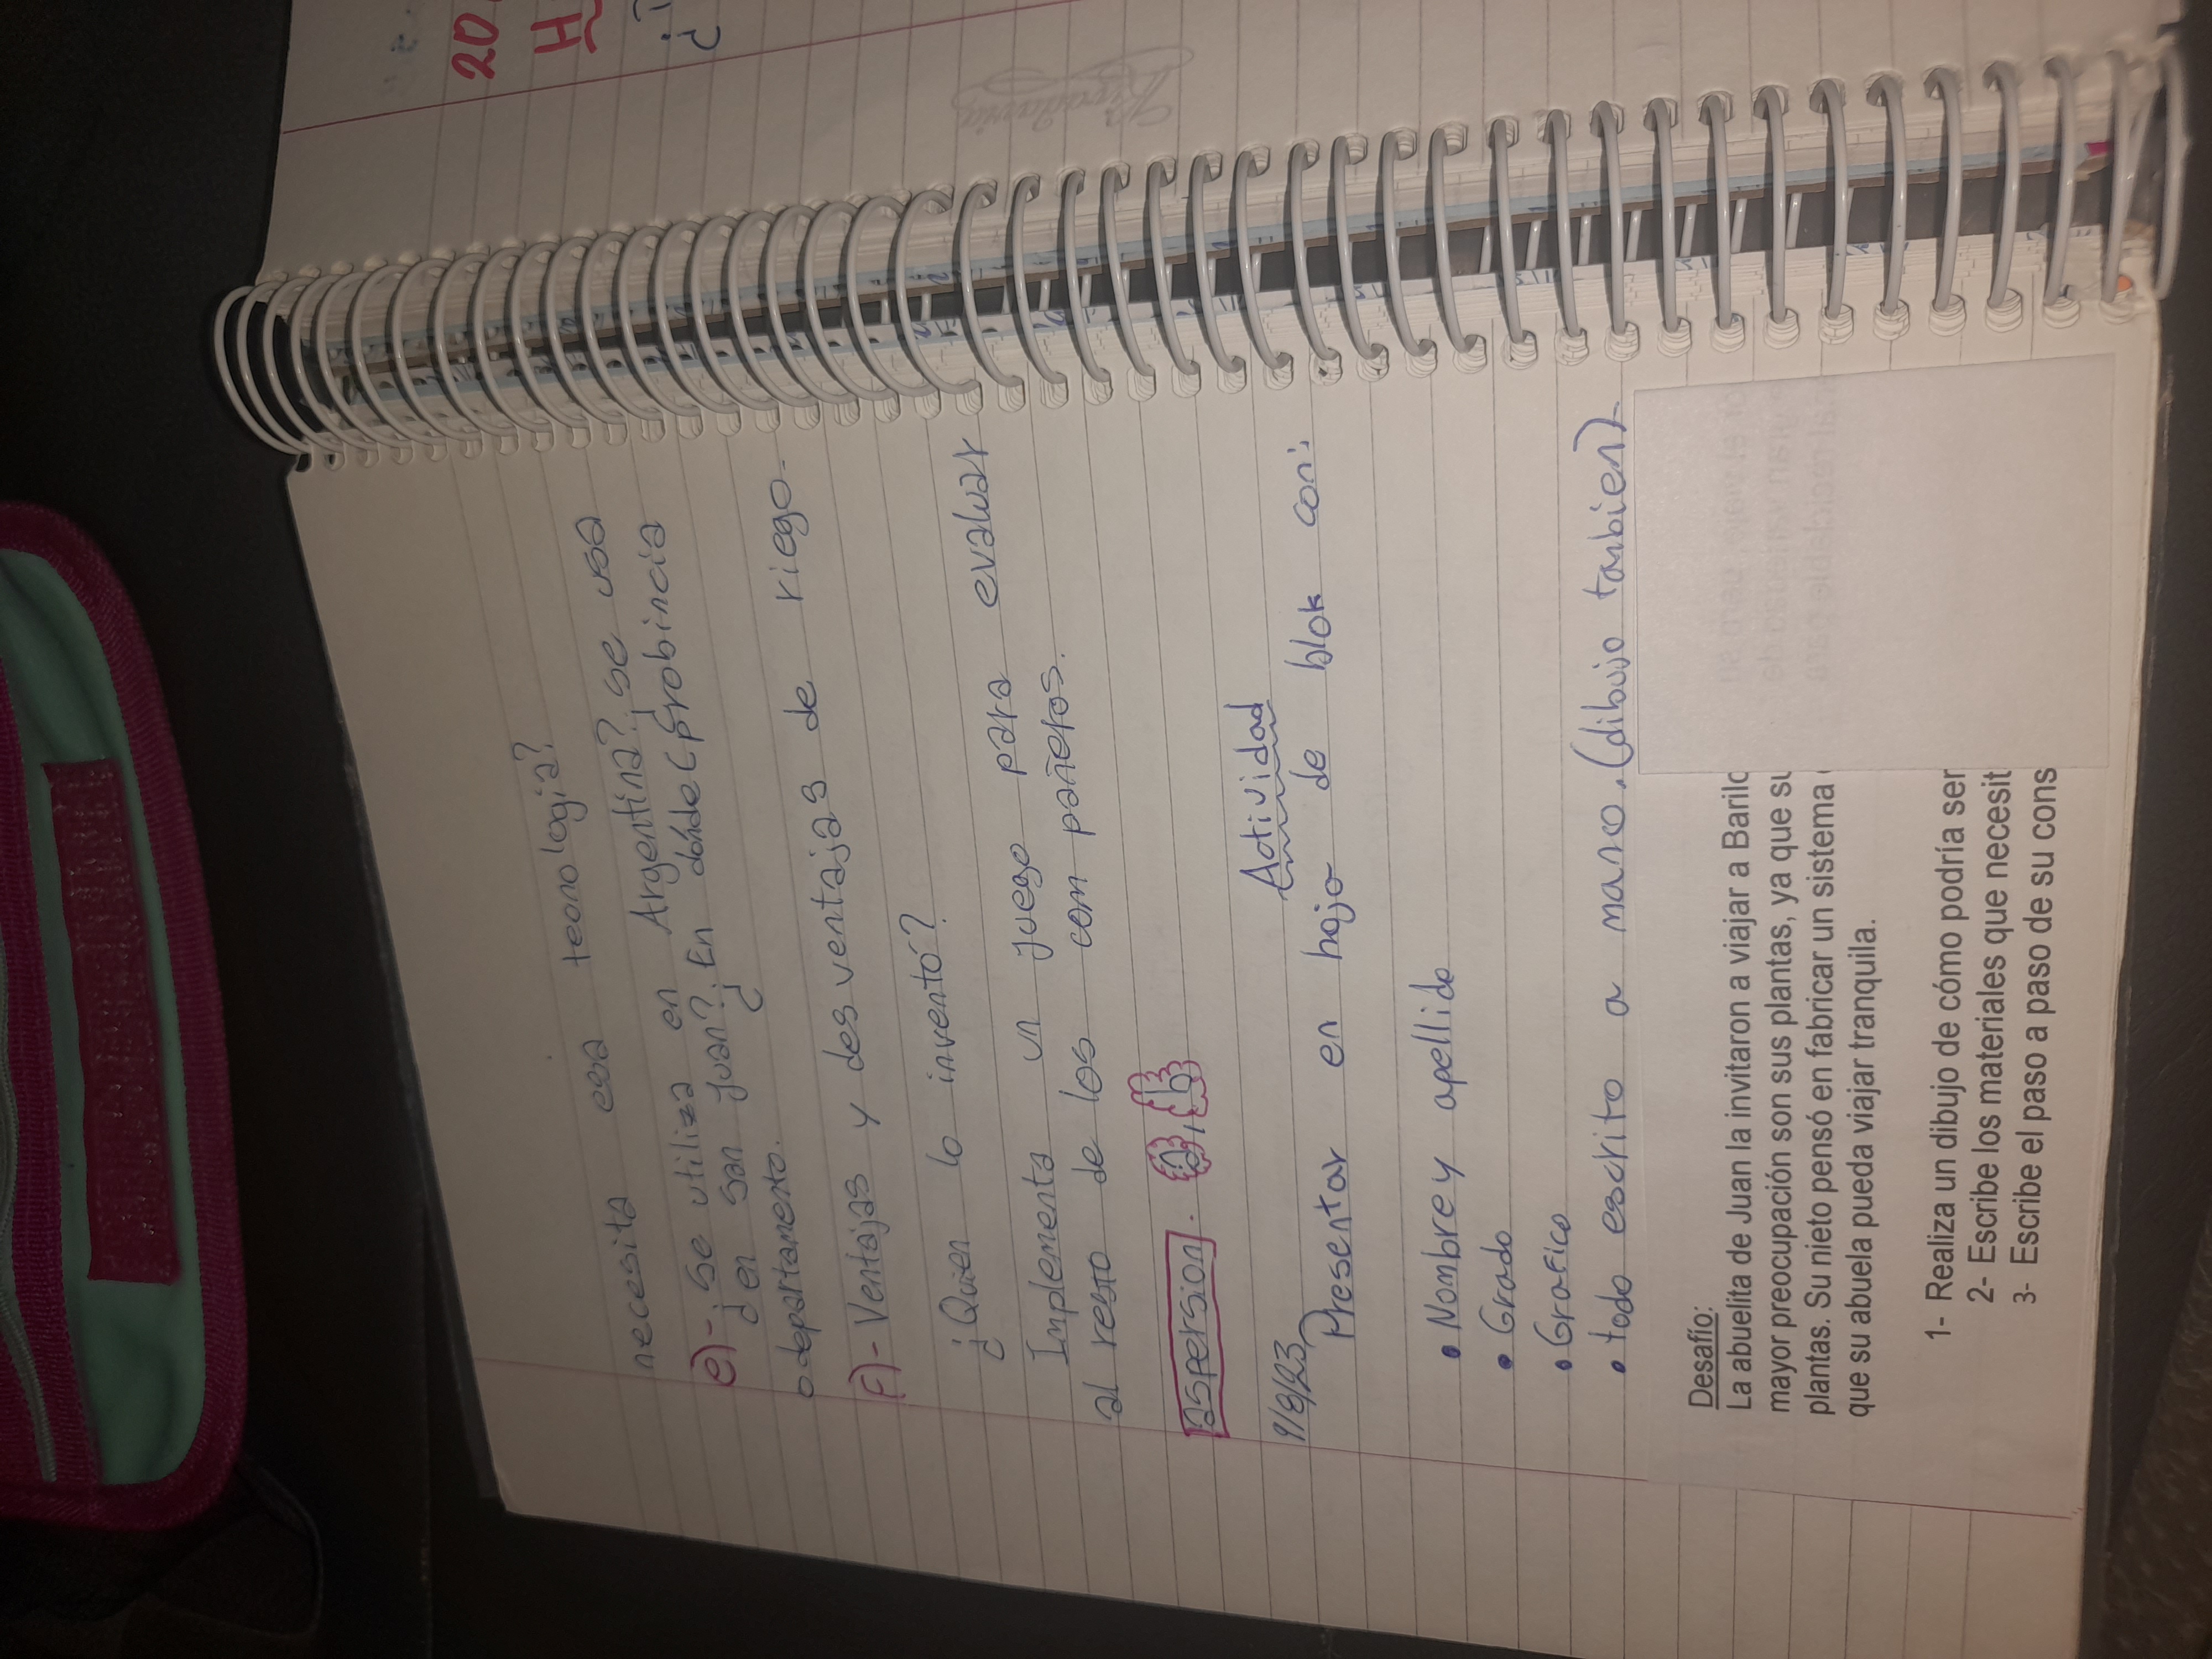 necesita esa tecnología?
e)- ¿Se utiliza en Argentina? ¿se usa
en san juan? ¿En dónde (probincia
o departamento.
f)- Ventajas y desventajas de riego.
¿Quien lo inventó?
Implementa un juego para evaluar
al resto de los compañeros.
aspersion. a, b
9/8/23
Actividad
Presentar en hoja de blok con:
• Nombre y apellido
• Grado
• Grafico
• todo escrito a mano. (dibujo tambien)
Desafío:
La abuelita de Juan la invitaron a viajar a Barilo
mayor preocupación son sus plantas, ya que su
plantas. Su nieto pensó en fabricar un sistema
que su abuela pueda viajar tranquila.
1- Realiza un dibujo de cómo podría ser
2- Escribe los materiales que necesit
3- Escribe el paso a paso de su cons
20
H
¿